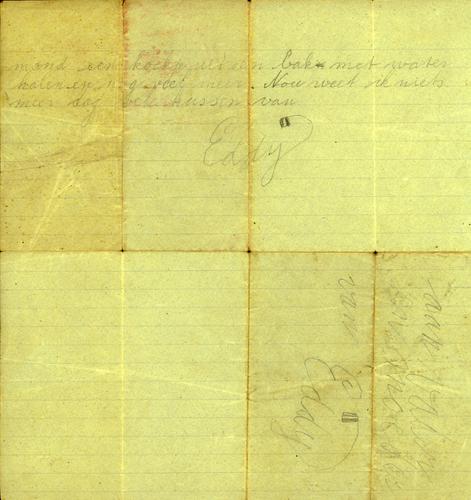 mond een koekje uit een bak met water
halen en nog veel meer. Nou weet ik niets
meer dag vele kussen van
Eddy
van Eddy
aan